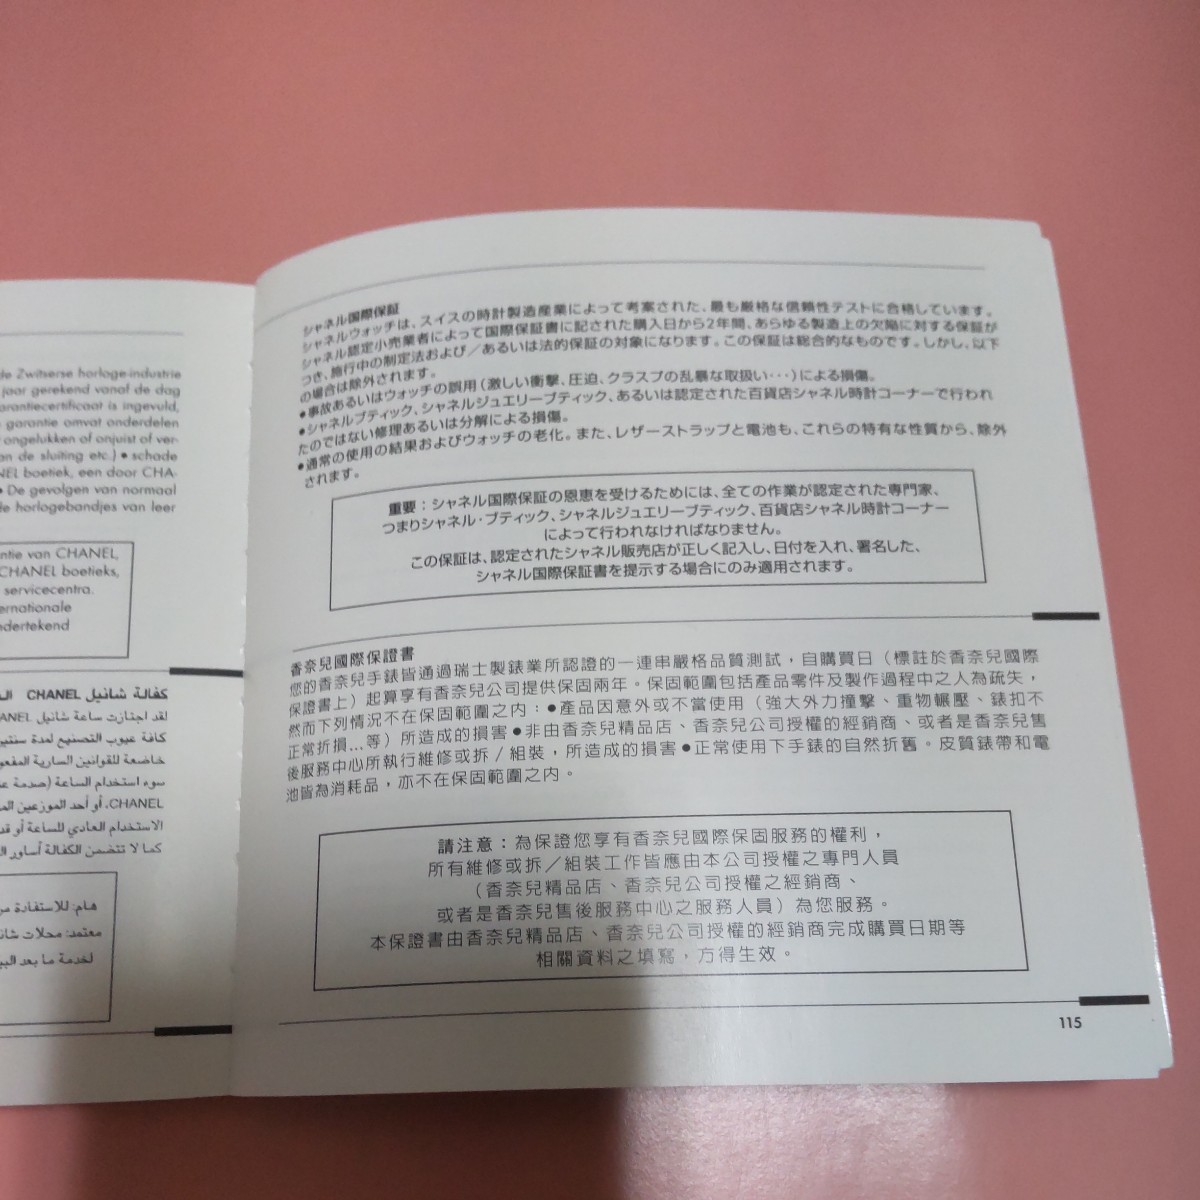 de Zwitserse horloge-industrie
jaar gerekend vanaf de dag
arantiecertificaat is ingevuld,
garantie omvat onderdelen
ongelukken of onjuist of ver-
an de sluiting etc.) ● schade
NEL boetiek, een door CHA-
● De gevolgen van normaal
de horlogebandjes van leer
ntie van CHANEL,
CHANEL boetieks,
servicecentra.
ernationale
ndertekend
كفالة شانيل CHANEL
لقد اجتازت ساعة شانيل
كافة عيوب التصنيع لمدة سنتين
خاضعة للقوانين السارية
سوء استخدام الساعة (صدمة
CHANEL، أو أحد الموزعين
الاستخدام العادي للساعة أو
كما لا تتضمن الكفالة أساور
هام: للاستفادة من
معتمد: محلات
لخدمة ما بعد
シャネル国際保証
シャネルウォッチは、スイスの時計製造産業によって考案された、最も厳格な信頼性テストに合格しています。
シャネル認定小売業者によって国際保証書に記された購入日から2年間、あらゆる製造上の欠陥に対する保証が
つき、施行中の制定法および/あるいは法的保証の対象になります。この保証は総合的なものです。しかし、以下
の場合は除外されます。
●事故あるいはウォッチの誤用(激しい衝撃、圧迫、クラスプの乱暴な取扱い・・・)による損傷。
●シャネルブティック、シャネルジュエリーブティック、あるいは認定された百貨店シャネル時計コーナーで行われ
たのではない修理あるいは分解による損傷。
●通常の使用の結果およびウォッチの老化。また、レザーストラップと電池も、これらの特有な性質から、除外
されます。
重要：シャネル国際保証の恩恵を受けるためには、全ての作業が認定された専門家、
つまりシャネル・ブティック、シャネルジュエリーブティック、百貨店シャネル時計コーナー
によって行われなければなりません。
この保証は、認定されたシャネル販売店が正しく記入し、日付を入れ、署名した、
シャネル国際保証書を提示する場合にのみ適用されます。
香奈兒國際保證書
您的香奈兒手錶皆通過瑞士製錶業所認證的一連串嚴格品質測試，自購買日（標註於香奈兒國際
保證書上）起算享有香奈兒公司提供保固兩年。保固範圍包括產品零件及製作過程中之人為疏失，
然而下列情況不在保固範圍之內：●產品因意外或不當使用（強大外力撞擊、重物輾壓、錶扣不
正常折損...等）所造成的損害●非由香奈兒精品店、香奈兒公司授權的經銷商、或者是香奈兒售
後服務中心所執行維修或拆/組裝，所造成的損害●正常使用下手錶的自然折舊。皮質錶帶和電
池皆為消耗品，亦不在保固範圍之內。
請注意：為保證您享有香奈兒國際保固服務的權利，
所有維修或拆／組裝工作皆應由本公司授權之專門人員
（香奈兒精品店、香奈兒公司授權之經銷商、
或者是香奈兒售後服務中心之服務人員）為您服務。
本保證書由香奈兒精品店、香奈兒公司授權的經銷商完成購買日期等
相關資料之填寫，方得生效。
115